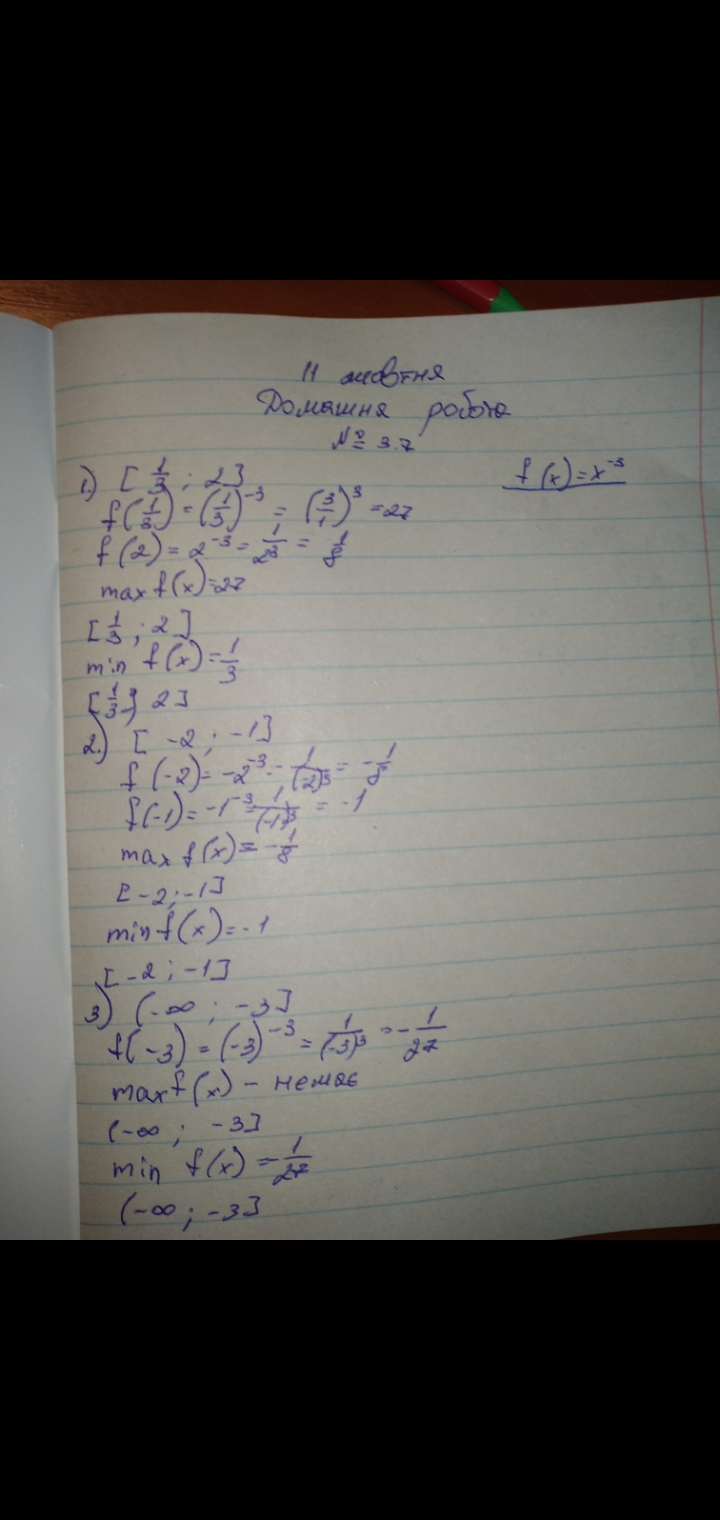 11 жовтня
Домашня робота
№ 3.7
f(x)=x⁻³
1) [1/3 ; 2]
f(1/3) = (1/3)⁻³ = (3/1)³ = 27
f(2) = 2⁻³ = 1/2³ = 1/8
max f(x)=27
[1/3 ; 2]
min f(x)=1/3
[1/3 ; 2]
2.) [-2 ; -1]
f(-2) = -2⁻³ = 1/(-2)³ = -1/8
f(-1) = -1⁻³ = 1/(-1)³ = -1
max f(x) = -1/8
[-2 ; -1]
min f(x) = -1
[-2 ; -1]
3) (-∞ ; -3]
f(-3) = (-3)⁻³ = 1/(-3)³ = -1/27
max f(x) - немає
(-∞ ; -3]
min f(x) = -1/27
(-∞ ; -3]